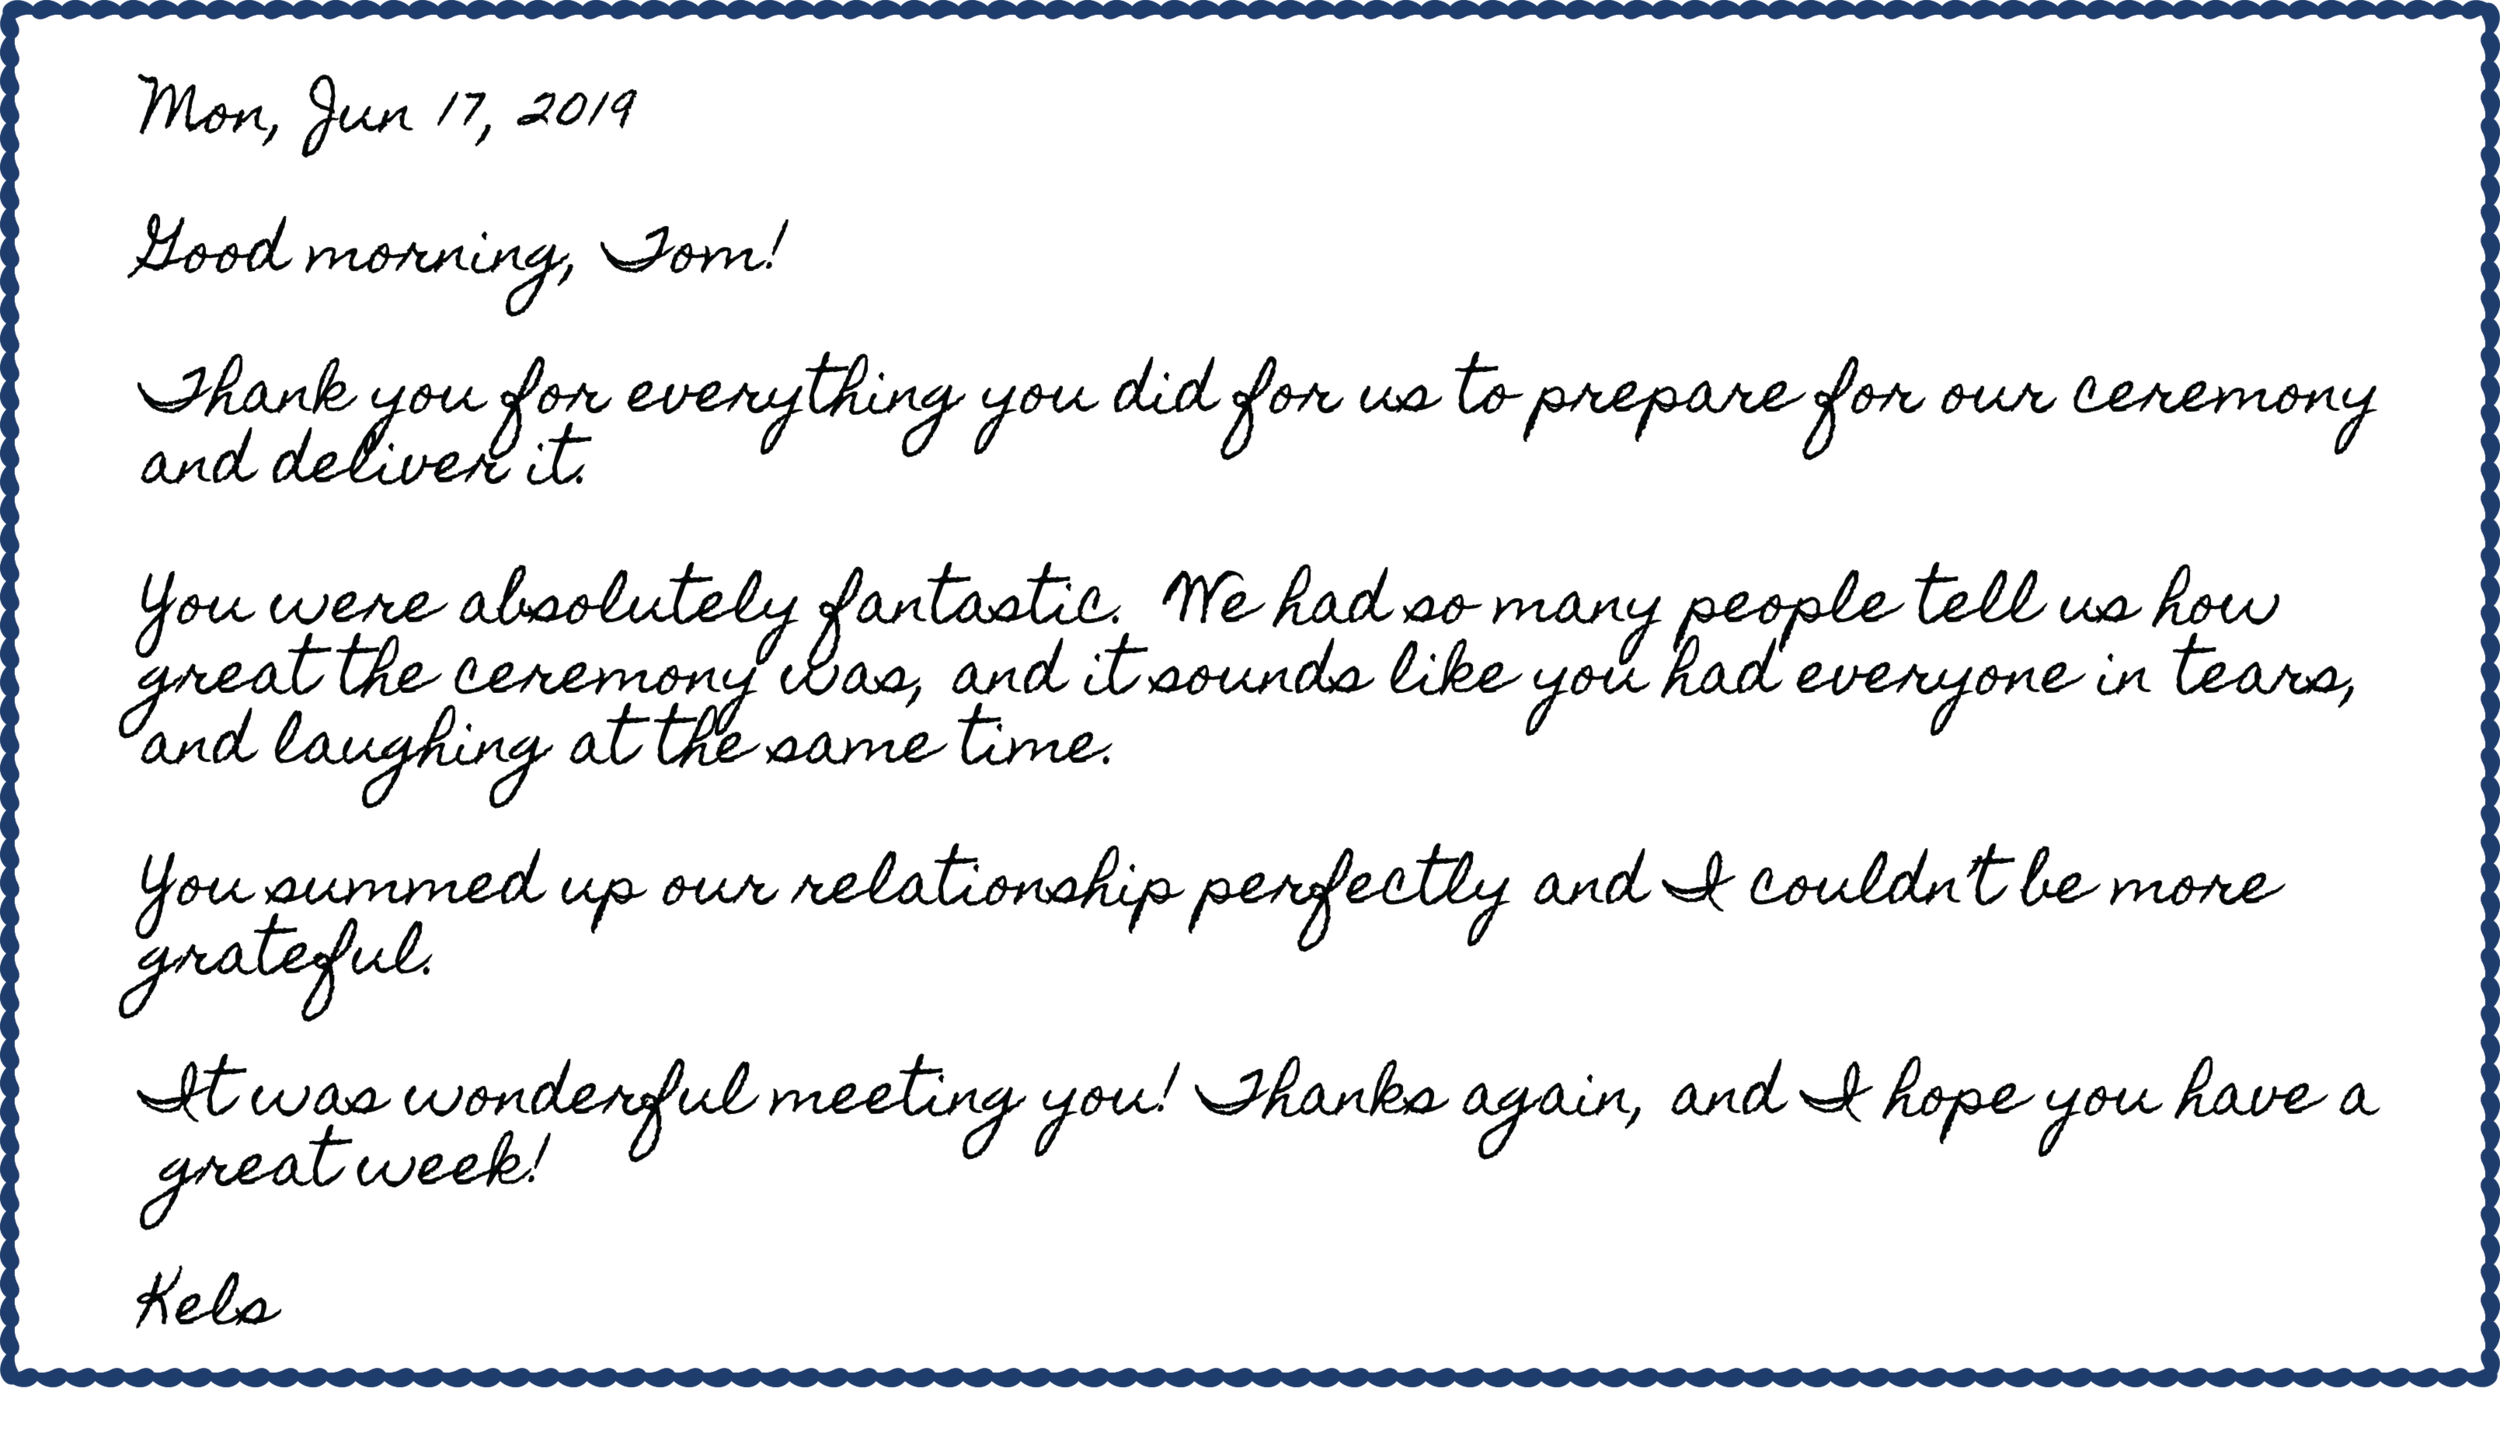 Mon, Jun 17, 2019
Good morning, Tom!
Thank you for everything you did for us to prepare for our ceremony
and deliver it.
You were absolutely fantastic. We had so many people tell us how
great the ceremony was, and it sounds like you had everyone in tears,
and laughing at the same time.
You summed up our relationship perfectly and I couldn't be more
grateful.
It was wonderful meeting you! Thanks again, and I hope you have a
great week!
Kels